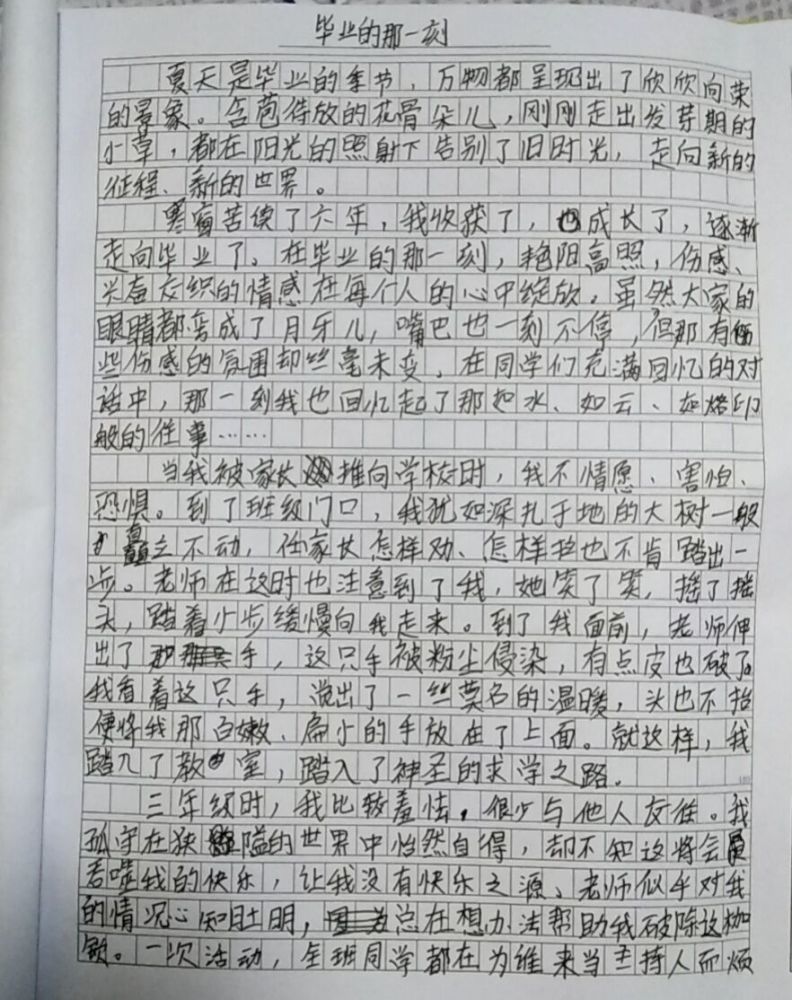 毕业的那一刻
夏天是毕业的季节，万物都呈现出了欣欣向荣
的景象。含苞待放的花骨朵儿，刚刚走出发芽期的
小草，都在阳光的照射下告别了旧时光，走向新的
征程、新的世界。
寒窗苦读了六年，我收获了，也成长了，逐渐
走向毕业了。在毕业的那一刻，艳阳高照，伤感、
兴奋交织的情感在每个人的心中绽放。虽然大家的
眼睛都弯成了月牙儿，嘴巴也一刻不停，但那有
些伤感的氛围却丝毫未变，在同学们充满回忆的对
话中，那一刻我也回忆起了那如水、如云、如烙印
般的往事……
当我被家长推向学校时，我不情愿、害怕、
恐惧。到了班级门口，我犹如深扎于地的大树一般
矗立不动，任家长怎样劝、怎样拉也不肯踏出一
步。老师在这时也注意到了我，她笑了笑，摇了摇
头，踏着小步缓慢向我走来。到了我面前，老师伸
出了手，这只手被粉尘侵染，有点皮也破了。
我看着这只手，觉出了一丝莫名的温暖，头也不抬
便将我那白嫩、扁小的手放在了上面。就这样，我
踏入了教室，踏入了神圣的求学之路。
三年级时，我比较羞怯，很少与他人交往。我
孤守在狭隘的世界中怡然自得，却不知这将会
吞噬我的快乐，让我没有快乐之源、老师似乎对我
的情况心知肚明，总在想办法帮助我破除这枷
锁。一次活动，全班同学都在为谁来当主持人而烦